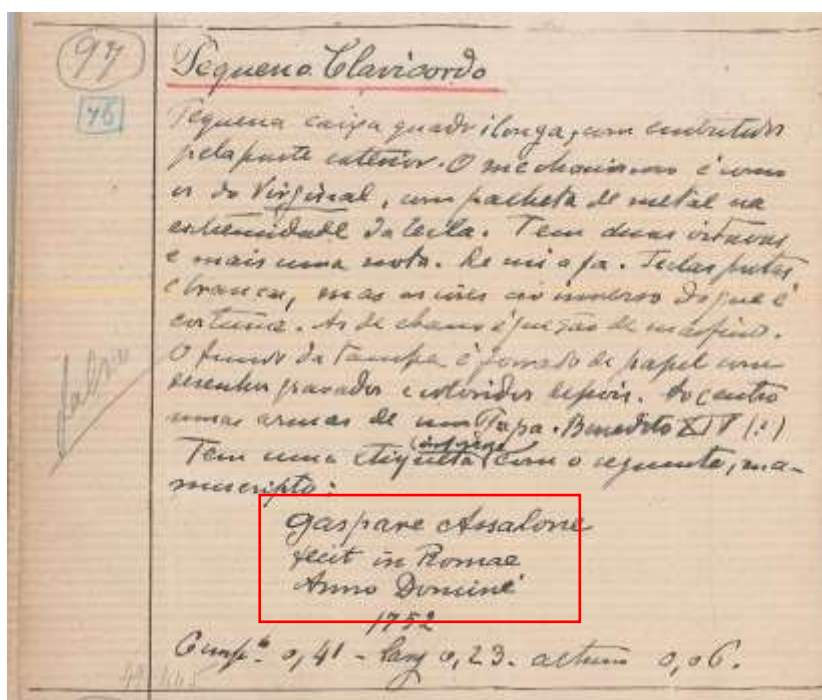 97
Pequeno Clavicordo
76
Pequena caixa quadrilonga, com embutidos
pela parte exterior. O mechanismo é como
o do Virginal, com palheta de metal na
extremidade da tecla. Tem duas oitavas
e mais uma nota. De mi a fa. Teclas pretas
e brancas, mas as côres ao inverso do que é
costume. As de chano é que são de marfim.
O fundo da tampa é forrado de papel com
desenhos gravados e coloridos depois. Ao centro
umas armas de um Papa. Benedito XIV (?)
Tem uma etiqueta com o seguinte, ma-
nuscripto:
Gaspare Assalone
fecit in Romae
Anno Domine
1752
Comp.to 0,41 - larg 0,23. altura 0,06.